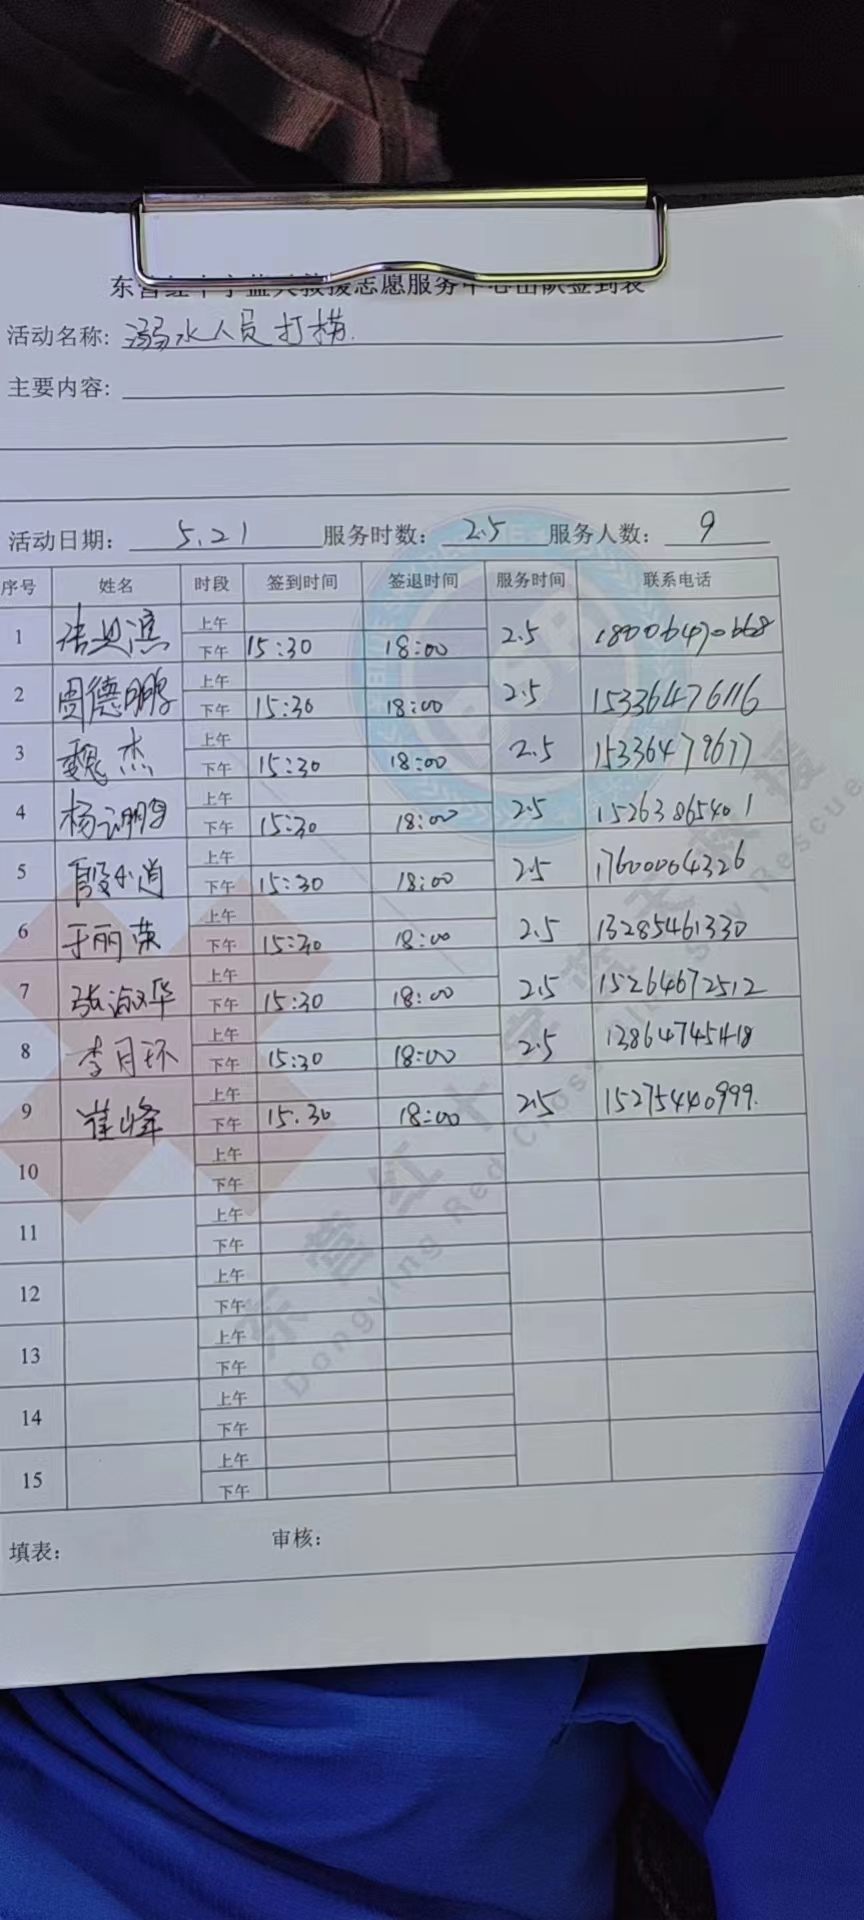 东营红十字蓝天救援志愿服务中心出队签到表
活动名称: 溺水人员打捞.
主要内容:
活动日期: 5.21 服务时数: 2.5 服务人数: 9
序号 姓名 时段 签到时间 签退时间 服务时间 联系电话
1 上午
下午 15:30 18:00 2.5 18006470668
2 周德鹏 上午
下午 15:30 18:00 2.5 15336476116
3 魏杰 上午
下午 15:30 18:00 2.5 15336479677
4 杨 上午
下午 15:30 18:00 2.5 15263865401
5 殷小肖 上午
下午 15:30 18:00 2.5 17600064326
6 于丽荣 上午
下午 15:30 18:00 2.5 13285461330
7 张淑华 上午
下午 15:30 18:00 2.5 15264672512
8 李月环 上午
下午 15:30 18:00 2.5 13864745418
9 崔峰 上午
下午 15.30 18:00 2.5 15275440999.
10 上午
下午
11 上午
下午
12 上午
下午
13 上午
下午
14 上午
下午
15 上午
下午
填表: 审核:
东营红十字蓝天救援
Dongying Red Cross Blue Sky Rescue